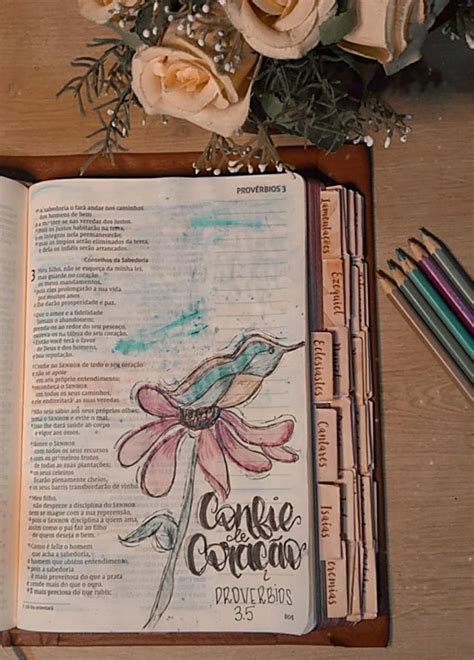 PROVÉRBIOS 3
a sabedoria o fará andar nos caminhos
dos homens de bem
e a manter-se nas veredas dos justos.
os justos habitarão na terra,
e os íntegros nela permanecerão;
mas os ímpios serão eliminados da terra,
e dela os infiéis serão arrancados.
Conselhos da Sabedoria
3
Meu filho, não se esqueça da minha lei,
mas guarde no coração
os meus mandamentos,
pois eles prolongarão a sua vida
por muitos anos
e lhe darão prosperidade e paz.
Que o amor e a fidelidade
jamais o abandonem;
prenda-os ao redor do seu pescoço,
Então você terá o favor
de Deus e dos homens,
e boa reputação.
Confie no SENHOR de todo o seu coração
e não se apoie
em seu próprio entendimento;
reconheça o SENHOR
em todos os seus caminhos,
e ele endireitará as suas veredas.
Não seja sábio aos seus próprios olhos;
tema o SENHOR e evite o mal.
Isso lhe dará saúde ao corpo
e vigor aos ossos.
Honre o SENHOR
com todos os seus recursos
e com os primeiros frutos
de todas as suas plantações;
os seus celeiros
ficarão plenamente cheios,
e os seus barris transbordarão de vinho.
Meu filho,
não despreze a disciplina do SENHOR
nem se magoe com a sua repreensão,
pois o SENHOR disciplina a quem ama,
assim como o pai faz ao filho
de quem deseja o bem.
Como é feliz o homem
que acha a sabedoria,
o homem que obtém entendimento,
pois a sabedoria
é mais proveitosa do que a prata
e rende mais do que o ouro.
É mais preciosa do que rubis;
Confie
de
Coração
PROVÉRBIOS
3.5
805
Lamentações
Ezequiel
Eclesiastes
Cantares
Isaías
Jeremias